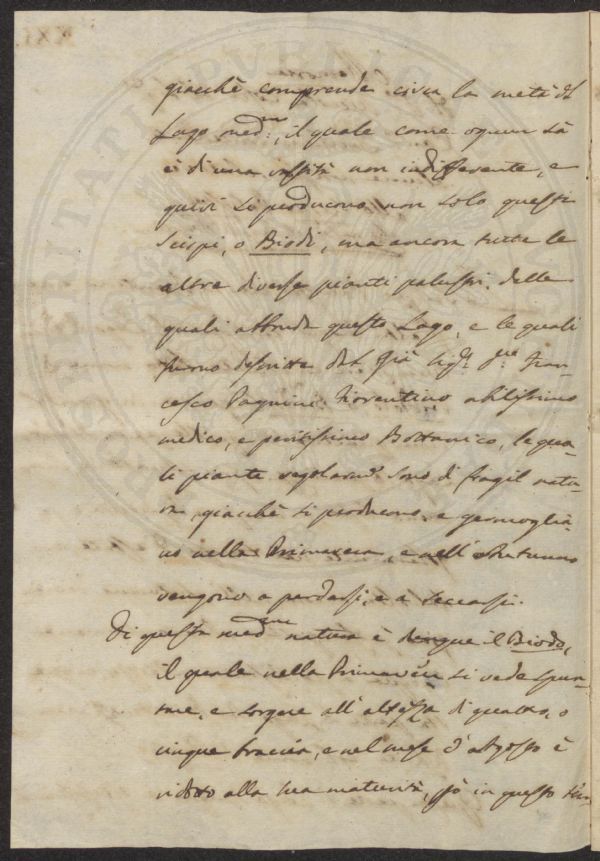 giacchè comprende circa la metà del
Lago med.mo, il quale come ognun sà
è di una vastità non indifferente, e
quivi si producono non solo questi
Scirpi, o Biodi, ma ancora tutte le
altre diverse pianti palustri, delle
quali abbonda questo Lago, e le quali
furno descritte dal già Sig.r Fran-
cesco Pagnini Fiorentino abilissimo
medico, e peritissimo Bottanico, le qua-
li piante regolarm.e sono di fragil natu-
ra, giacchè si producono, e germoglia-
no nella Primavera, e nell'Autunno
vengono a perdersi, e a seccarsi.
Di questa med.ma natura è dunque il Biodo,
il quale nella Primavera si vede spun-
tare, e sorgere all'altezza di quattro, o
cinque braccia, e nel mese d'Agosto è
ridotto alla sua maturità, in questo